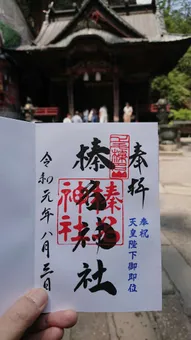 奉拝
奉祝
天皇陛下御即位
榛名神社
榛名神社
令和元年八月三日